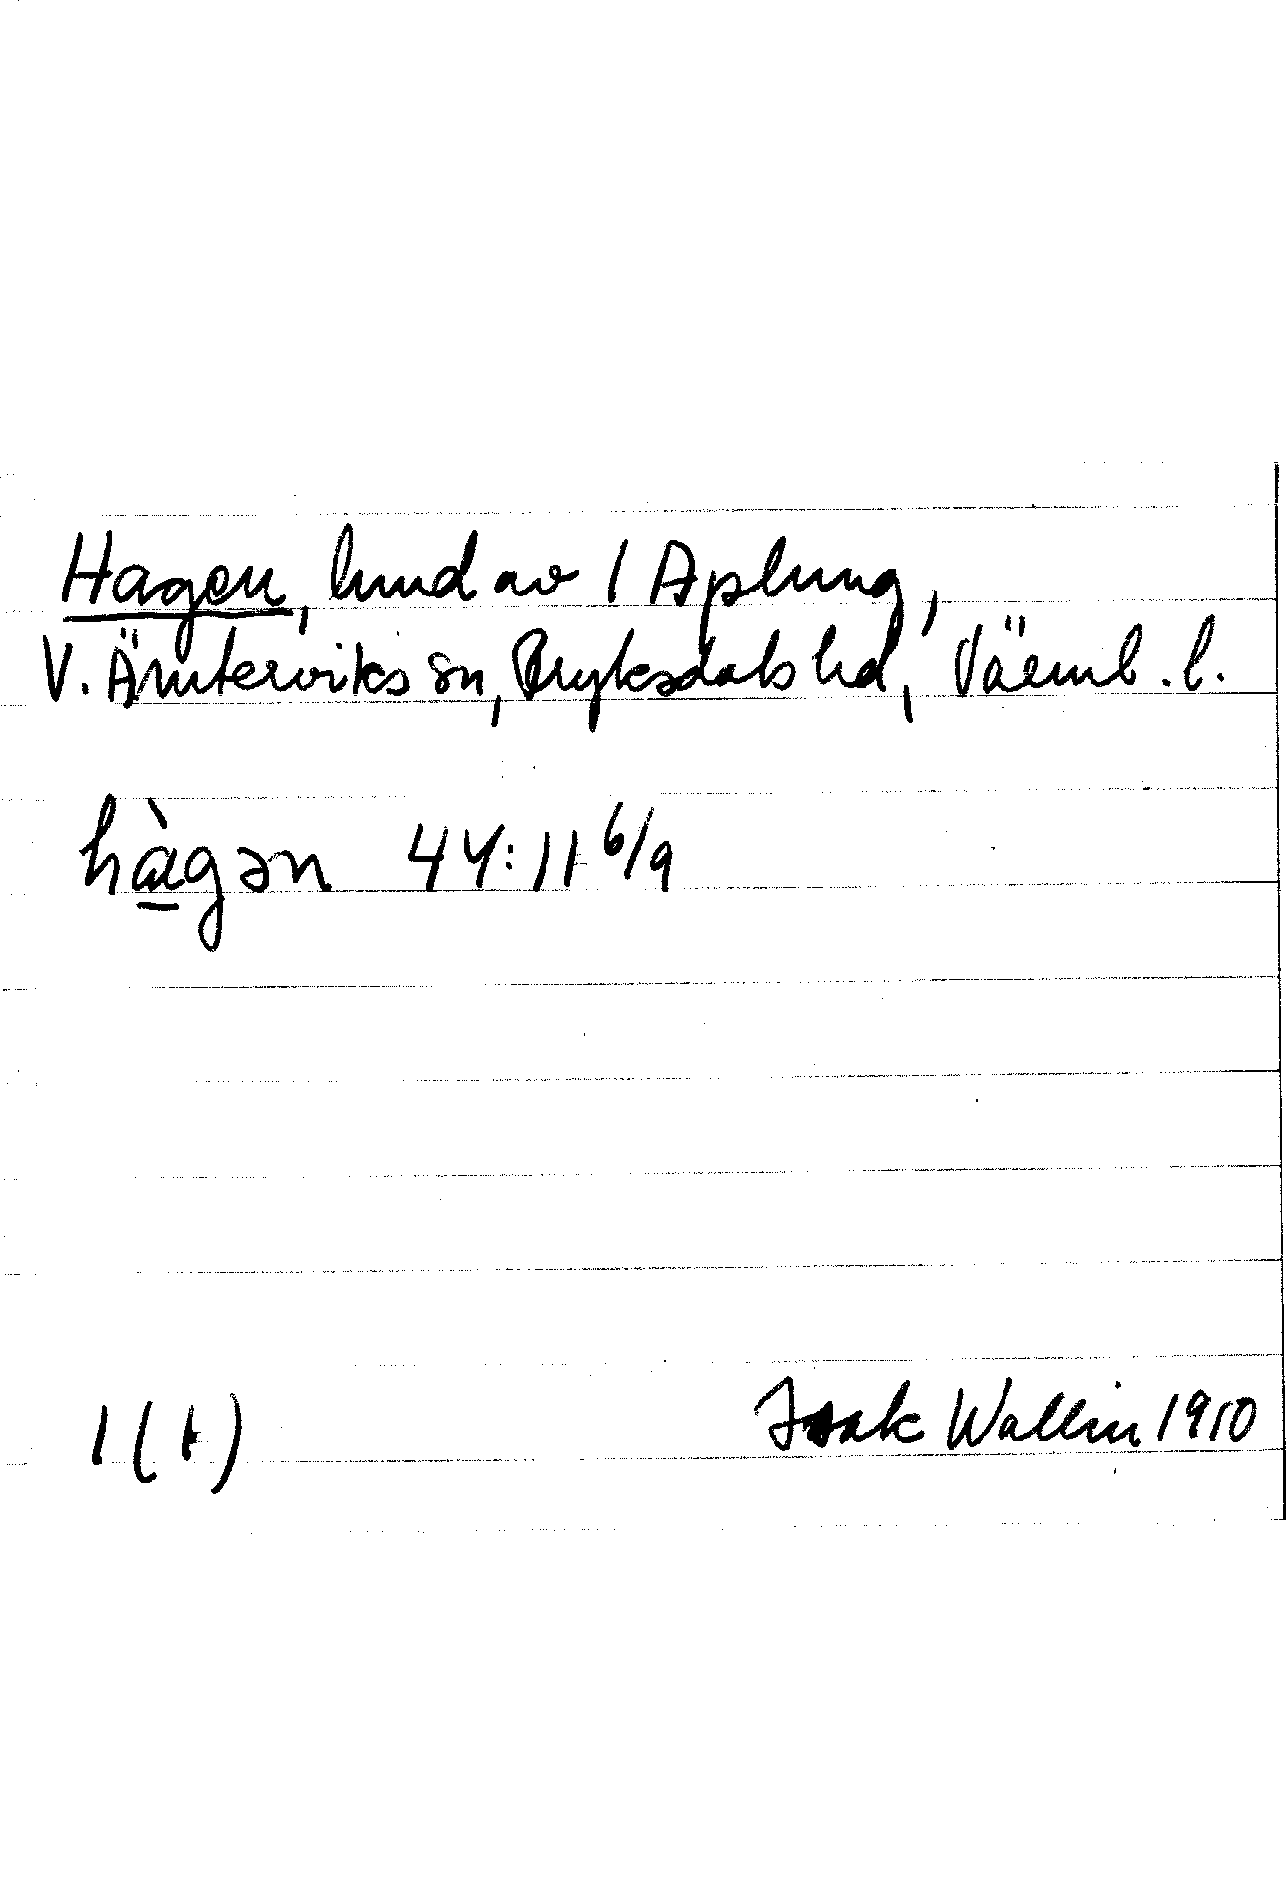 Hagen, hmd av 1 Aplung,
V. Ämterviks sn, Fryksdals hd, Värml. l.
hàgən 44:11 6/9
1 (1)
Isak Wallin 1910